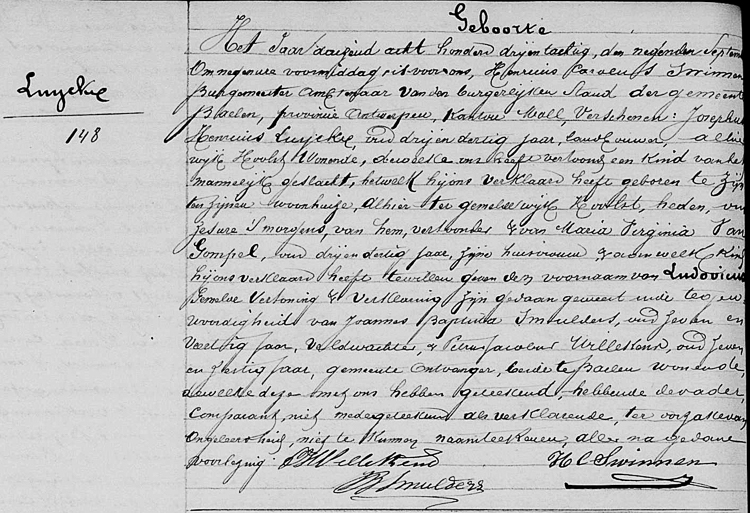 Geboorte
Het Jaar duizend acht honderd drijentachtig, den negenden Septem
Om negenure voormiddag zit voor ons, Henricus Carolus Swinnen
Burgemeester Ambtenaar van den burgerlijken Stand der gemeent
Baelen, provincie Antwerpen, Kanton Moll, Verschenen: Josephus
Luyckx
148
Henricus Luyckx, oud drij en dertig jaar, landbouwer, alhier
wyk Hoolst Wonende, dewelke ons heeft vertoond een Kind van het
mannelijk geslacht, hetwelk hij ons verklaard heeft geboren te zijn
ten zijnen woonhuize, alhier ter gemelde wijk Hoolst, heden, om
ure S morgens, van hem, vertoonder & van Maria Virginia Van
Gompel, oud drij en dertig jaar, zijne huisvrouw & aan welk Kind
hij ons verklaard heeft te willen geven den voornaam van Ludovicus
Gemelde Vertoning & Verklaring zijn gedaan geweest in de tegen
woordigheid van Joannes Baptista Smulders, oud Zeven en
Veertig jaar, Veldwachter, & Petrus Jacobus Willekens, oud Zeven
en jaar, gemeente Ontvanger, beide te Baelen wonende,
dewelke deze met ons hebben geteekend, hebbende de vader,
Comparant, niet medegeteekend als verklarende, ter oorzake van
Ongeleerdheid, niet te Kunnen naamteekenen, alles na gedane
voorlezing:
Willekens
H C Swinnen
B Smulders